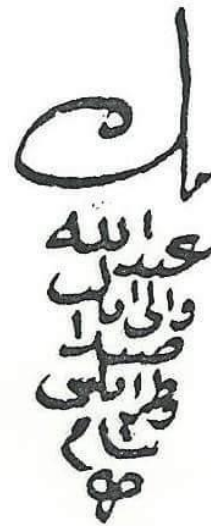 عبد الله
والى ايالت
صيدا
وطرابلس
شام